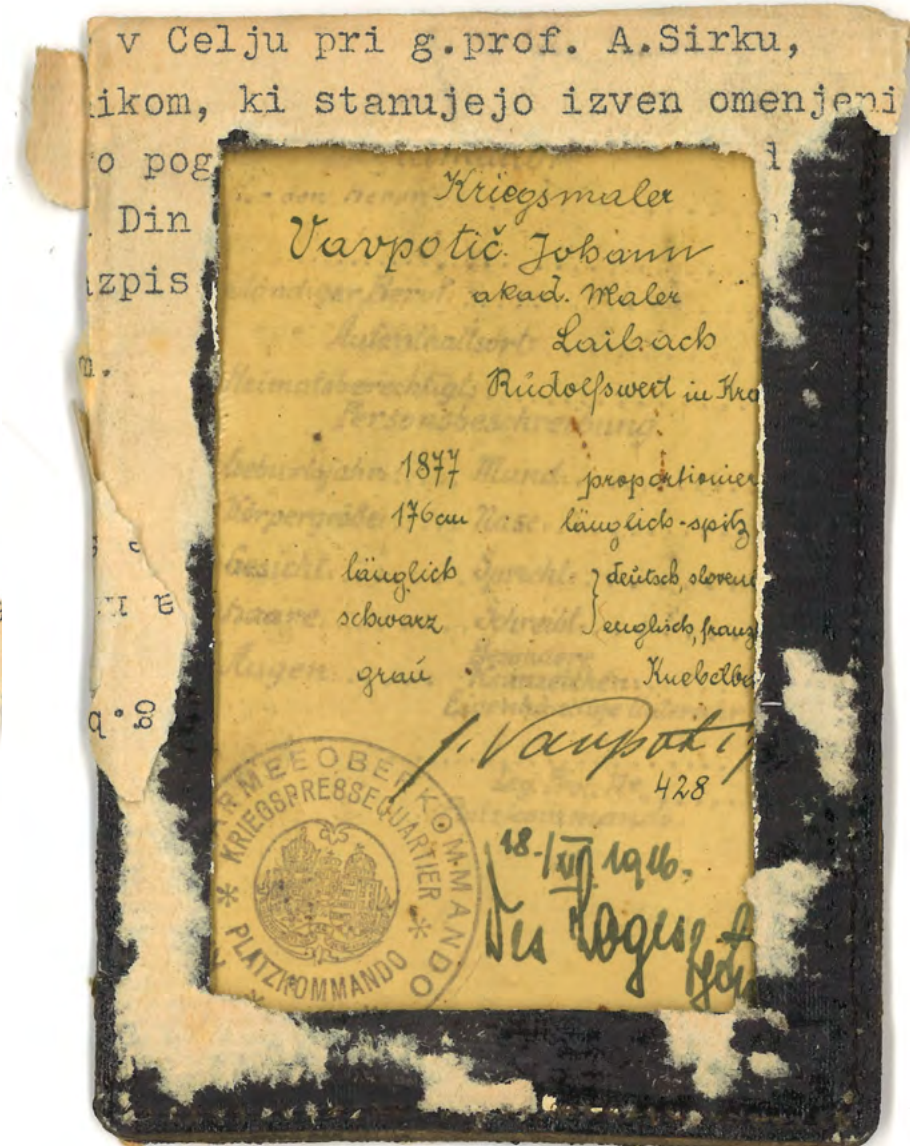 v Celju pri g.prof. A.Sirku,
ikom, ki stanujejo izven omenjeni
o pog
Din
zpis
m.
Kriegsmaler
Vavpotič Johann
akad. Maler
Aufenthaltsort: Laibach
Heimatsberechtigt: Rudolfswert in Kra
Personsbeschreibung
Geburtsjahr: 1877 Mund: proportionier
Körpergröße: 176 cm Nase: länglich-spitz
Gesicht: länglich Spricht: deutsch, sloveni
Haare: schwarz Schreibt: englisch, franz
Augen: grau Besondere Kennzeichen: Knebelba
J. Vavpotič
428
ARMEEOBERKOMMANDO
KRIEGSPRESSEQUARTIER
PLATZKOMMANDO
18./VII. 1916.